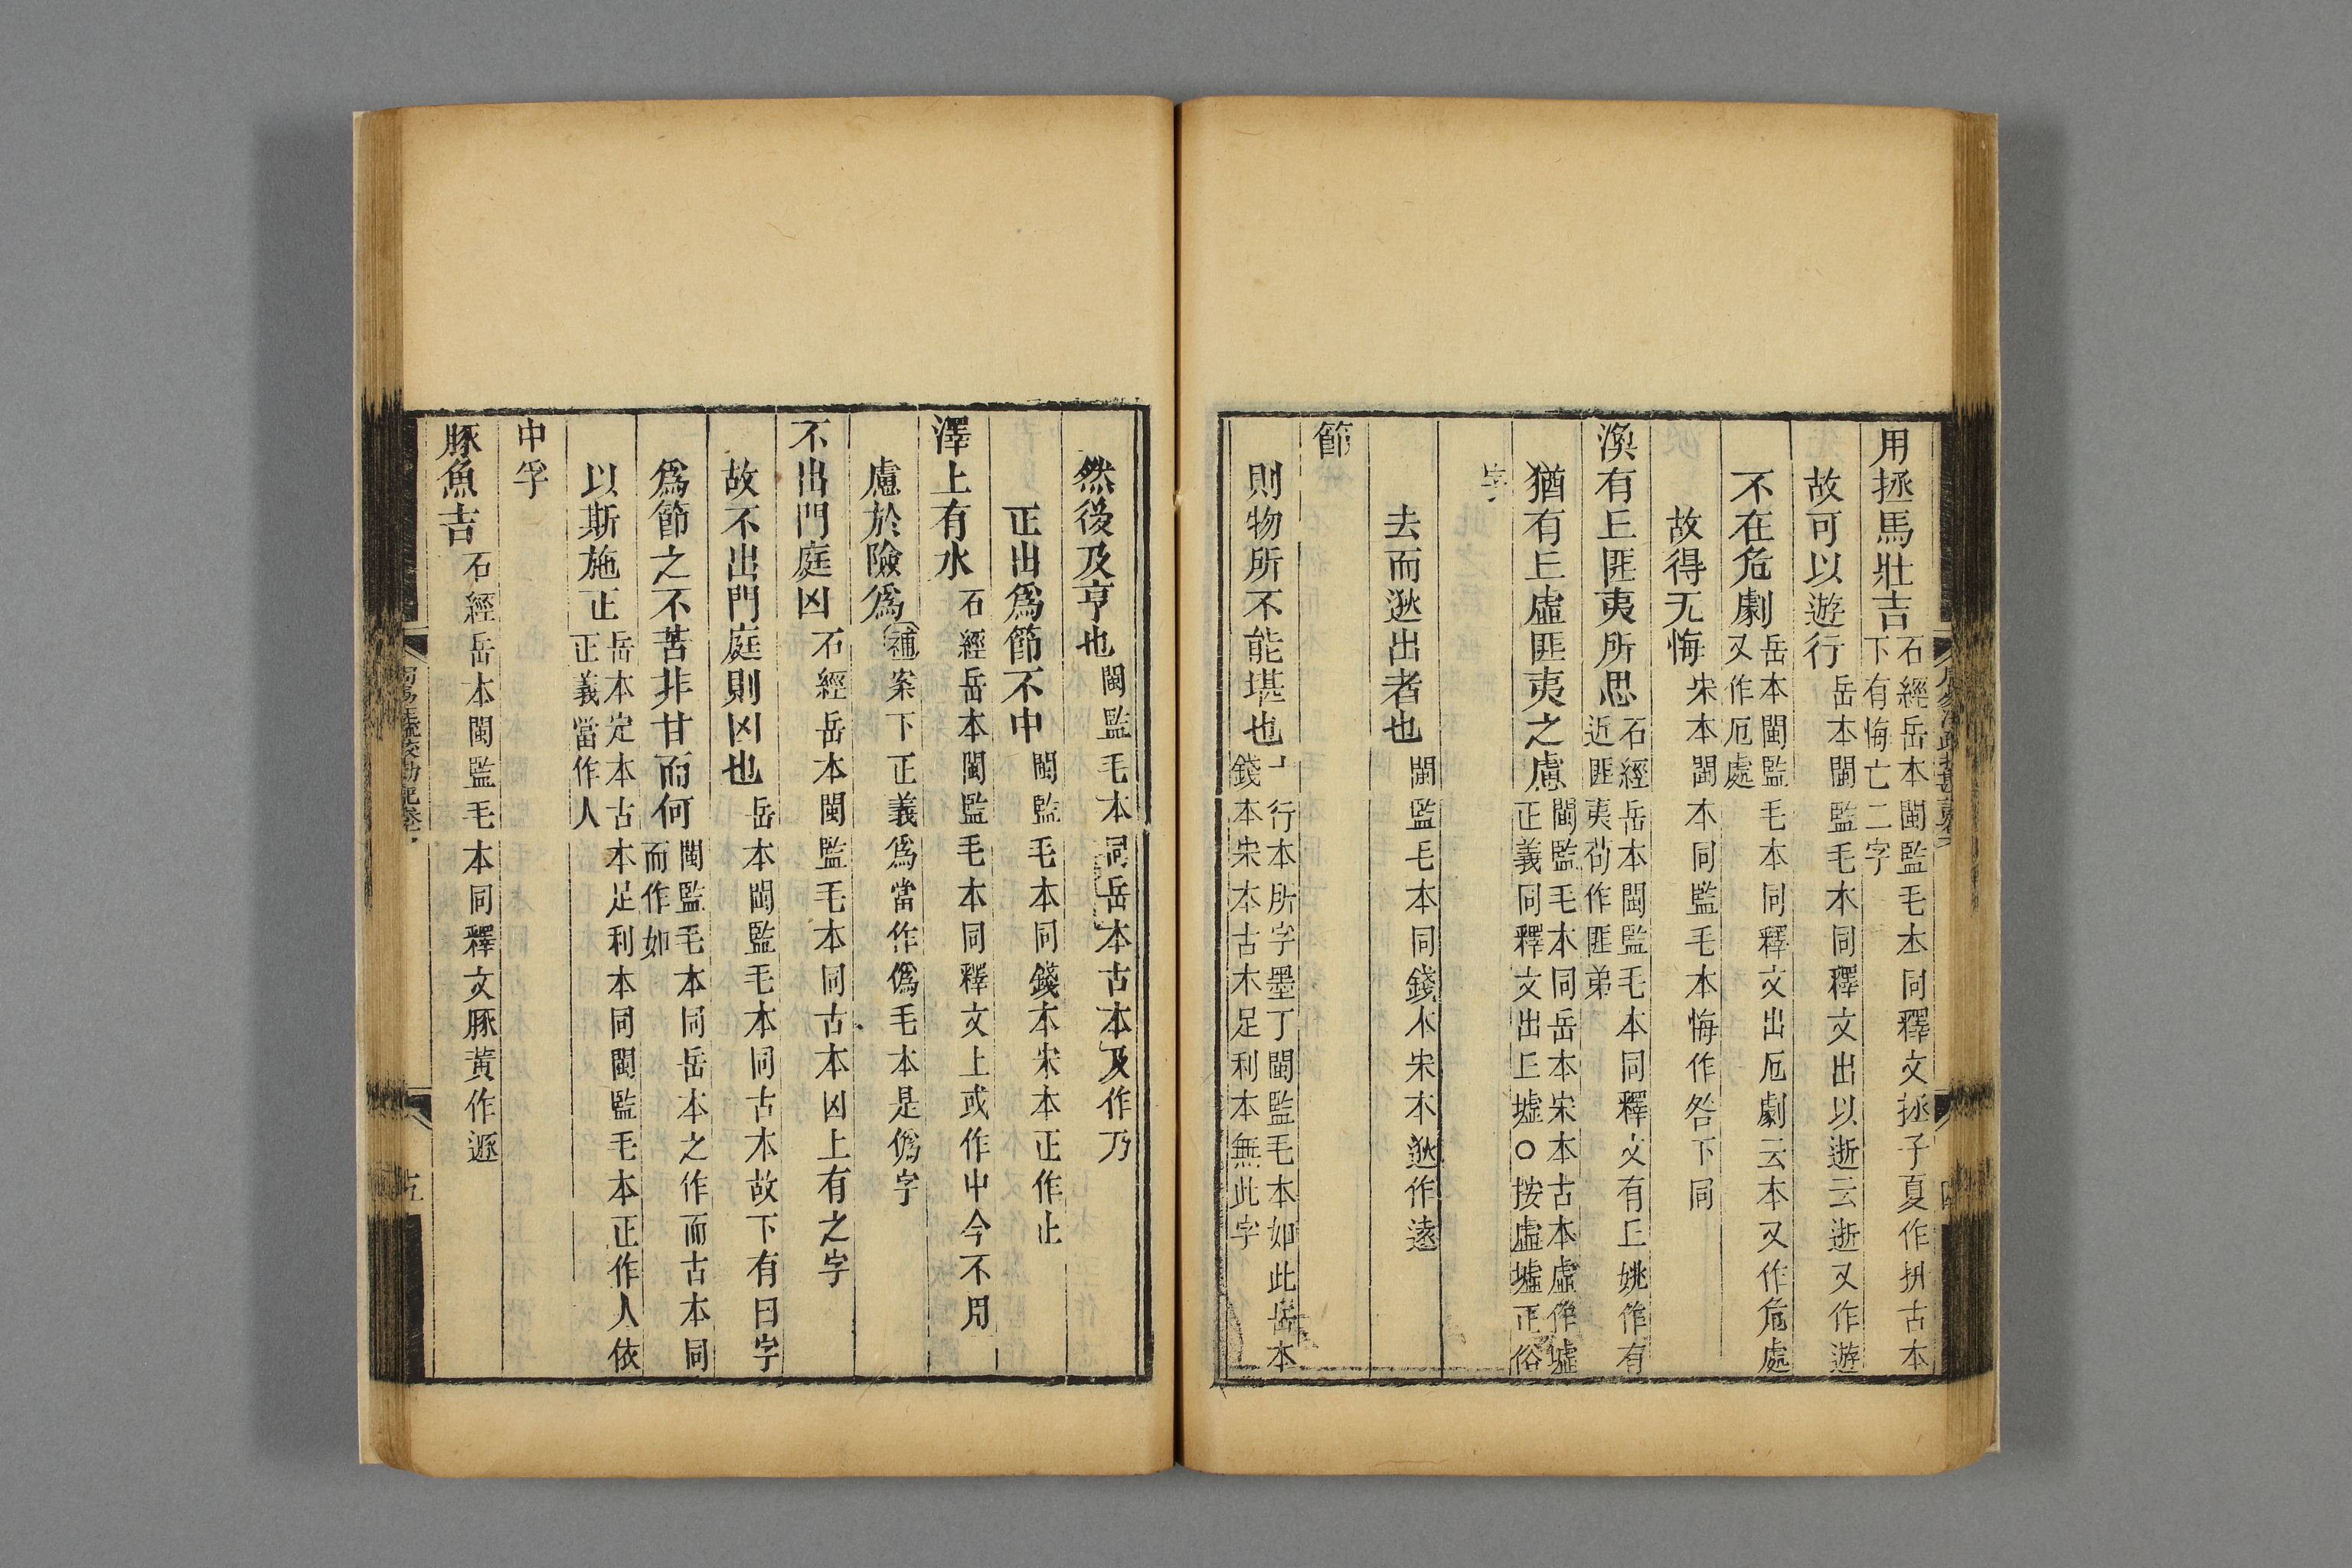 用拯馬壯吉石經岳本閩監毛本同釋文拯子夏作抍古本下有悔亡二字
故可以遊行岳本閩監毛本同釋文出以逝云逝又作遊
不在危劇岳本閩監毛本同釋文出厄劇云本又作危處又作厄處
故得无悔宋本閩本同監毛本悔作咎下同
渙有𠀉匪夷所思石經岳本閩監毛本同釋文有𠀉姚作有近匪夷荀作匪弟
猶有𠀉虛匪夷之慮閩監毛本同岳本宋本古本虛作墟正義同釋文出𠀉墟○按虛墟正俗
字
去而逖出者也閩監毛本同錢本宋本逖作逺
節
則物所不能堪也十行本所字墨丁閩監毛本如此岳本錢本宋本古本足利本無此字
然後及亨也閩監毛本同岳本古本及作乃
正出爲節不中閩監毛本同錢本宋本正作止
澤上有水石經岳本閩監毛本同釋文上或作中今不用
慮於險爲補案下正義爲當作僞毛本是僞字
不出門庭凶石經岳本閩監毛本同古本凶上有之字
故不出門庭則凶也岳本閩監毛本同古本故下有曰字
爲節之不苦非甘而何閩監毛本同岳本之作而古本同而作如
以斯施正岳本定本古本足利本同閩監毛本正作人依正義當作人
中孚
豚魚吉石經岳本閩監毛本同釋文豚黃作遯